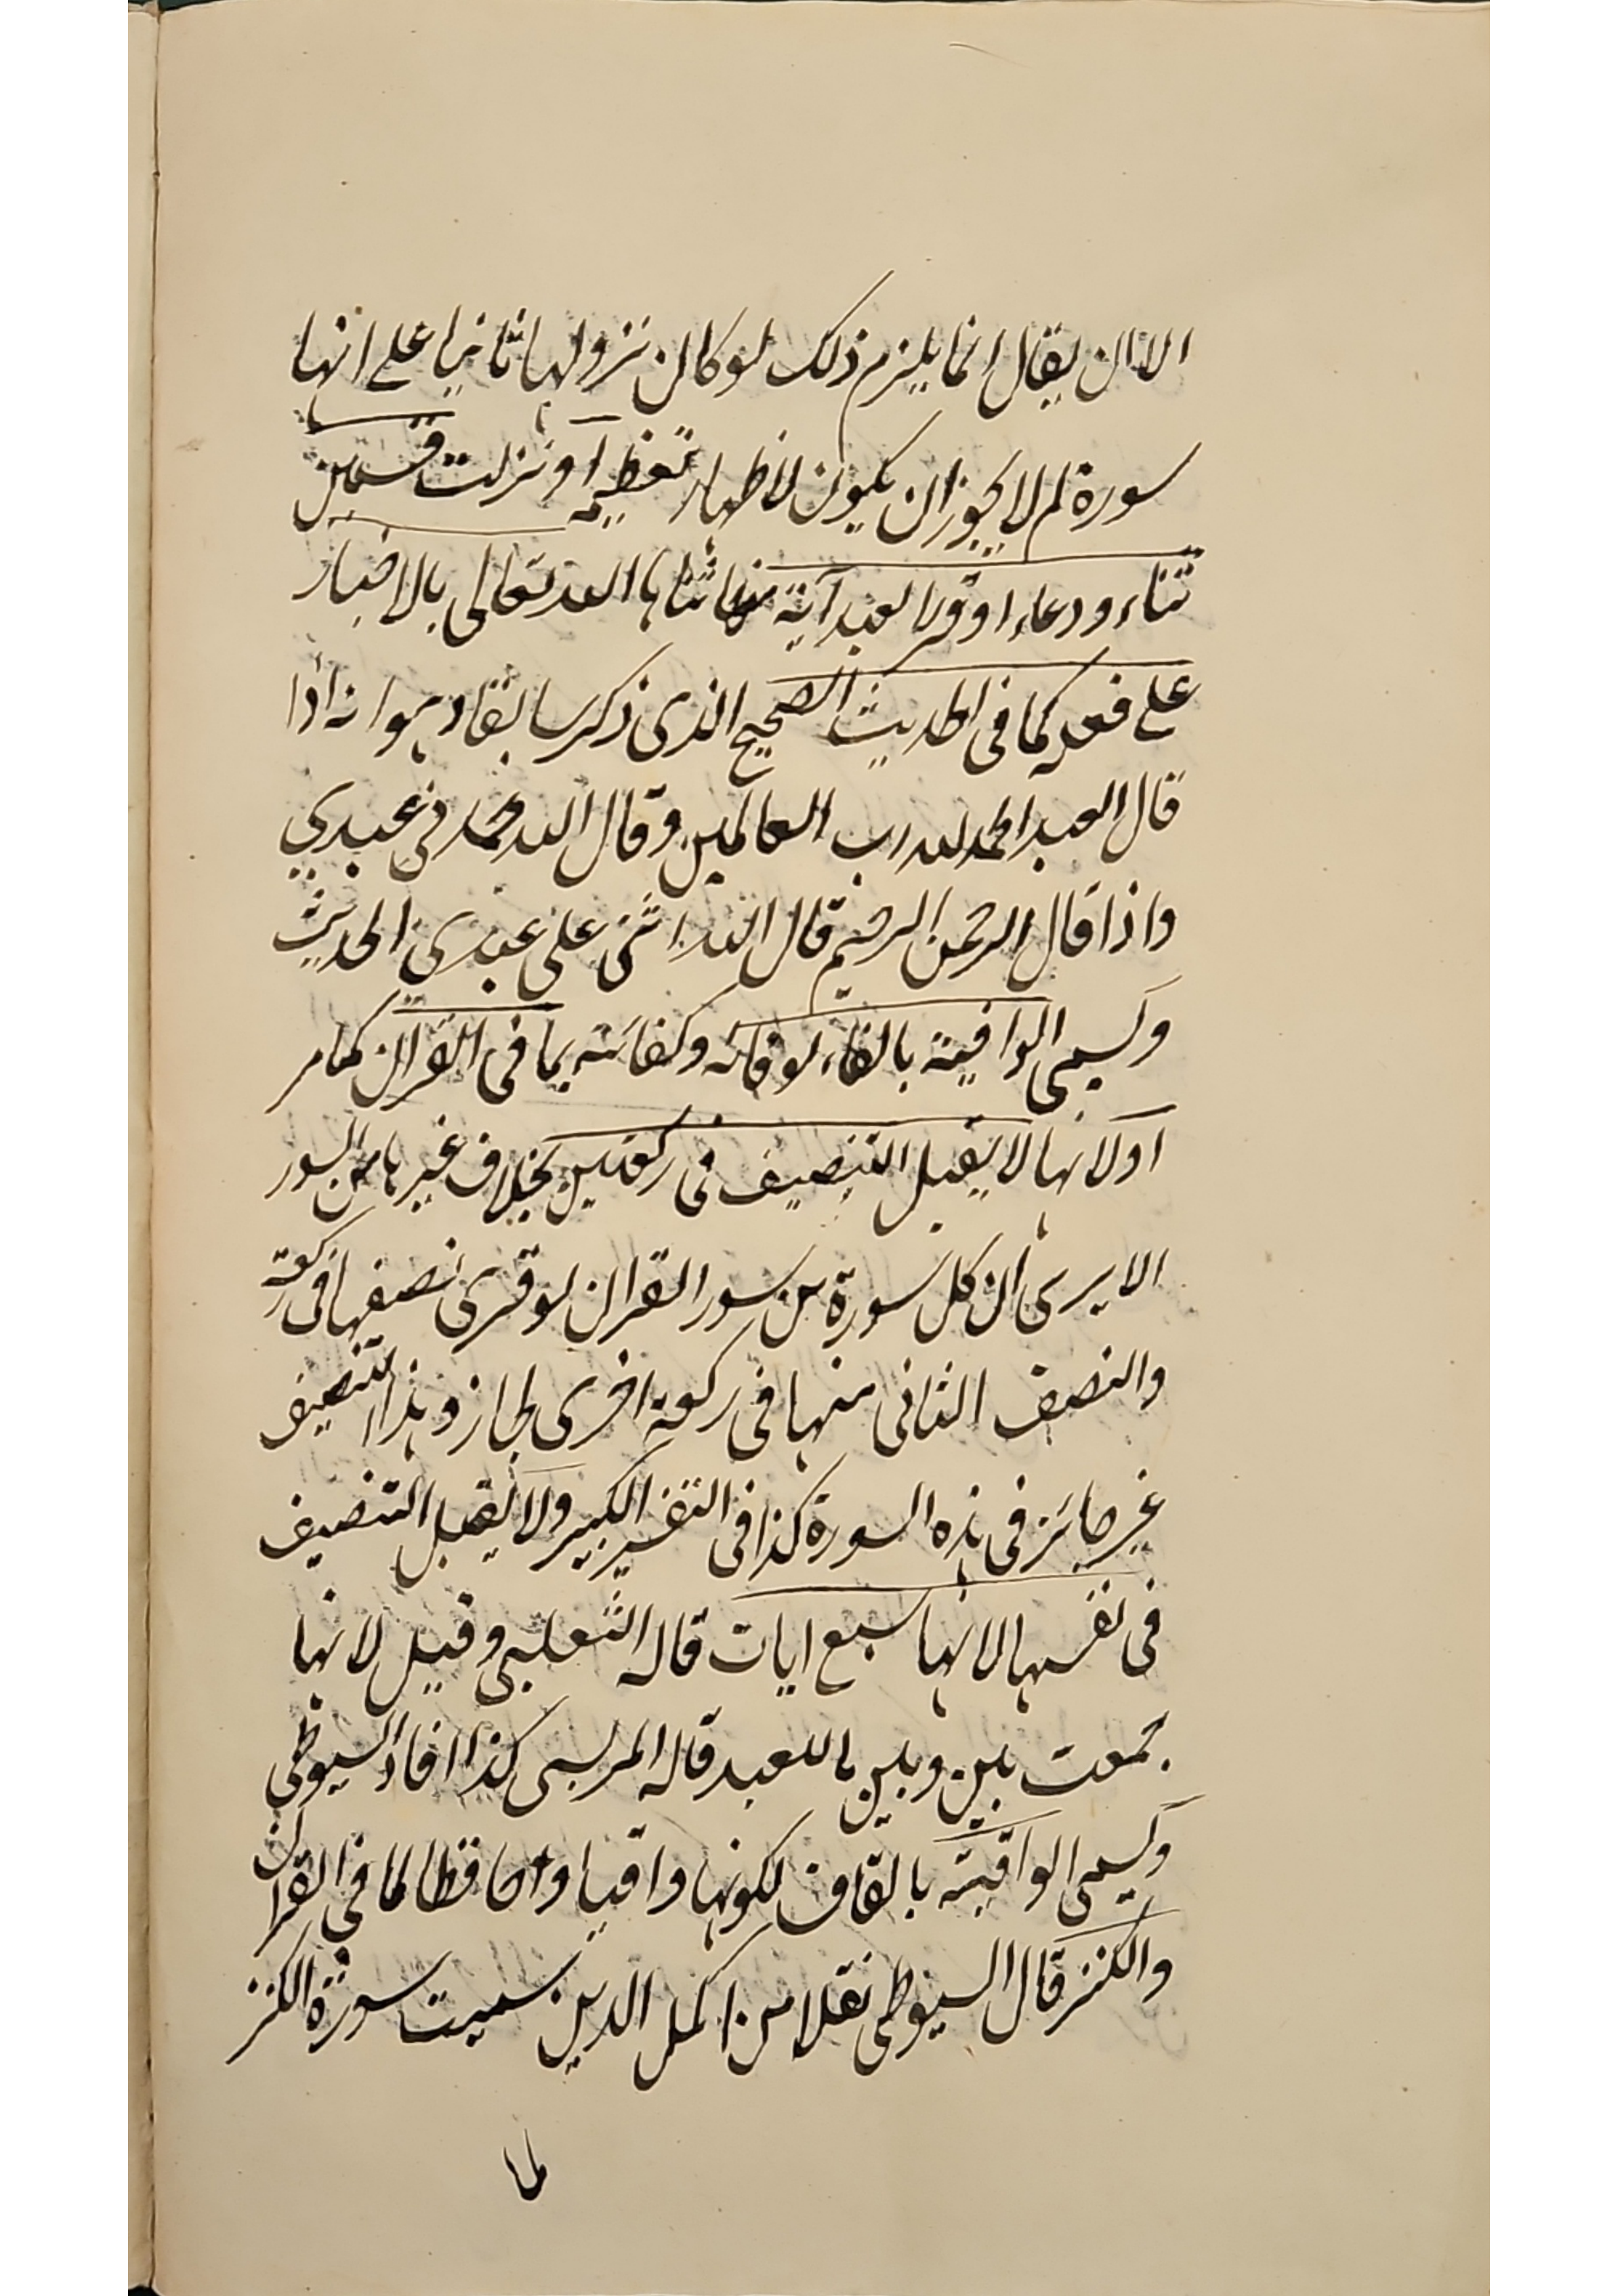 الا ان يقال انما يلزم ذلك لو كان نزولها ثانيا على انها
سورة لم لا يجوز ان يكون لاظهار تعظيمه او نزلت قسمين
ثناء ودعاء او قرا لعبد آية منها ثناها الله تعالى بالاخبار
على فعله كما فى الحديث الصحيح الذى ذكر سابقا وهو انه اذا
قال العبد الحمد لله رب العالمين وقال الله حمدنى عبدي
واذا قال الرحمن الرحيم قال الله اثنى على عبدي الحديث
وتسمى الوافية بالفاء لوفائه وكفائته بما فى القرآن كما مر
او لانها لا يقبل التنصيف فى ركعتين بخلاف غيرها من السور
الا يرى ان كل سورة من سور القران لو قرى نصفيها فى ركعة
والنصف الثانى منها فى ركعة اخرى لجاز وهذا التنصيف
غير جائز فى هذه السورة كذا فى التفسير الكبير ولا يقبل التنصيف
فى نفسها لانها سبع ايات قاله الثعلبى وقيل لانها
جمعت بين وبين ما للعبد قاله المرسى كذا افاد السيوطى
وتسمى الواقية بالقاف لكونها واقيا وحافظا لما فى القران
والكنز قال السيوطى نقلا من اكمل الدين سميت سورة الكنز
لما